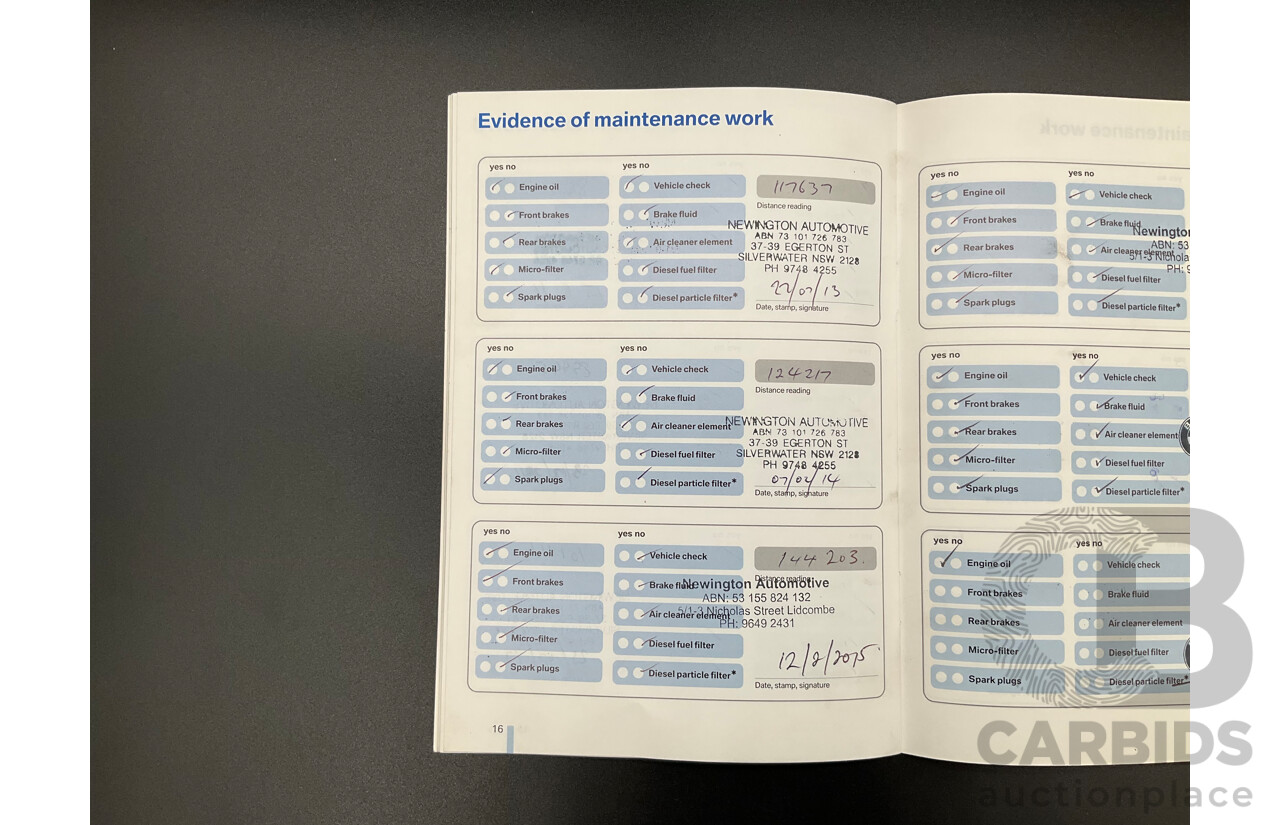 Evidence of maintenance work
yes no
yes no
Engine oil
Vehicle check
117637
Front brakes
Brake fluid
Distance reading
Rear brakes
Air cleaner element
Micro-filter
Diesel fuel filter
Spark plugs
Diesel particle filter*
NEWINGTON AUTOMOTIVE
ABN 73 101 726 783
37-39 EGERTON ST
SILVERWATER NSW 2128
PH 9748 4255
22/07/13
Date, stamp, signature
yes no
yes no
Engine oil
Vehicle check
124217
Front brakes
Brake fluid
Distance reading
Rear brakes
Air cleaner element
Micro-filter
Diesel fuel filter
Spark plugs
Diesel particle filter*
NEWINGTON AUTOMOTIVE
ABN 73 101 726 783
37-39 EGERTON ST
SILVERWATER NSW 2128
PH 9748 4255
07/04/14
Date, stamp, signature
yes no
yes no
Engine oil
Vehicle check
144203.
Front brakes
Brake fluid
Distance reading
Rear brakes
Air cleaner element
Micro-filter
Diesel fuel filter
Spark plugs
Diesel particle filter*
Newington Automotive
ABN: 53 155 824 132
5/1-3 Nicholas Street Lidcombe
PH: 9649 2431
12/2/2015
Date, stamp, signature
16
yes no
yes no
Engine oil
Vehicle check
Front brakes
Brake fluid
Rear brakes
Air cleaner element
Micro-filter
Diesel fuel filter
Spark plugs
Diesel particle filter*
ABN: 53
PH:
yes no
yes no
Engine oil
Vehicle check
Front brakes
Brake fluid
Rear brakes
Air cleaner element
Micro-filter
Diesel fuel filter
Spark plugs
Diesel particle filter*
yes no
yes no
Engine oil
Vehicle check
Front brakes
Brake fluid
Rear brakes
Air cleaner element
Micro-filter
Diesel fuel filter
Spark plugs
Diesel particle filter*
CARBIDS
auctionplace